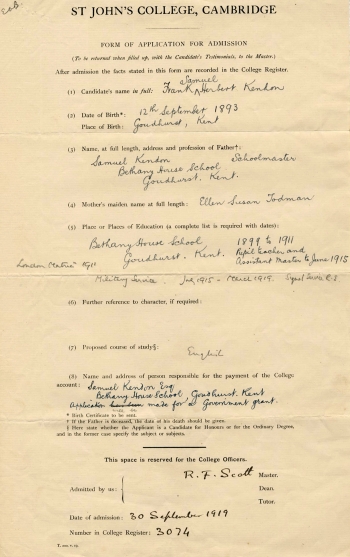 ST JOHN'S COLLEGE, CAMBRIDGE
FORM OF APPLICATION FOR ADMISSION
(To be returned when filled up, with the Candidate's Testimonials, to the Master.)
After admission the facts stated in this form are recorded in the College Register.
Samuel
(1) Candidate's name in full: Frank Herbert Kendon
(2) Date of Birth*: 12th September 1893
Place of Birth: Goudhurst, Kent
(3) Name, at full length, address and profession of Father†:
Samuel Kendon Schoolmaster
Bethany House School
Goudhurst, Kent.
(4) Mother's maiden name at full length: Ellen Susan Todman
(5) Place or Places of Education (a complete list is required with dates):
Bethany House School 1899 to 1911
Goudhurst - Kent. Pupil Teacher and
London Matric Assistant Master to June 1915
Military Service July 1915 - March 1919. Signal Service R.E
(6) Further reference to character, if required:
(7) Proposed course of study§: English
(8) Name and address of person responsible for the payment of the College
account: Samuel Kendon Esq
Bethany House School Goudhurst. Kent
Application made for a Government grant.
* Birth Certificate to be sent.
† If the Father is deceased, the date of his death should be given.
§ Here state whether the Applicant is a Candidate for Honours or for the Ordinary Degree,
and in the former case specify the subject or subjects.
This space is reserved for the College Officers.
R. F. Scott Master.
Admitted by us: Dean.
Tutor.
Date of admission: 30 September 1919
Number in College Register: 3074